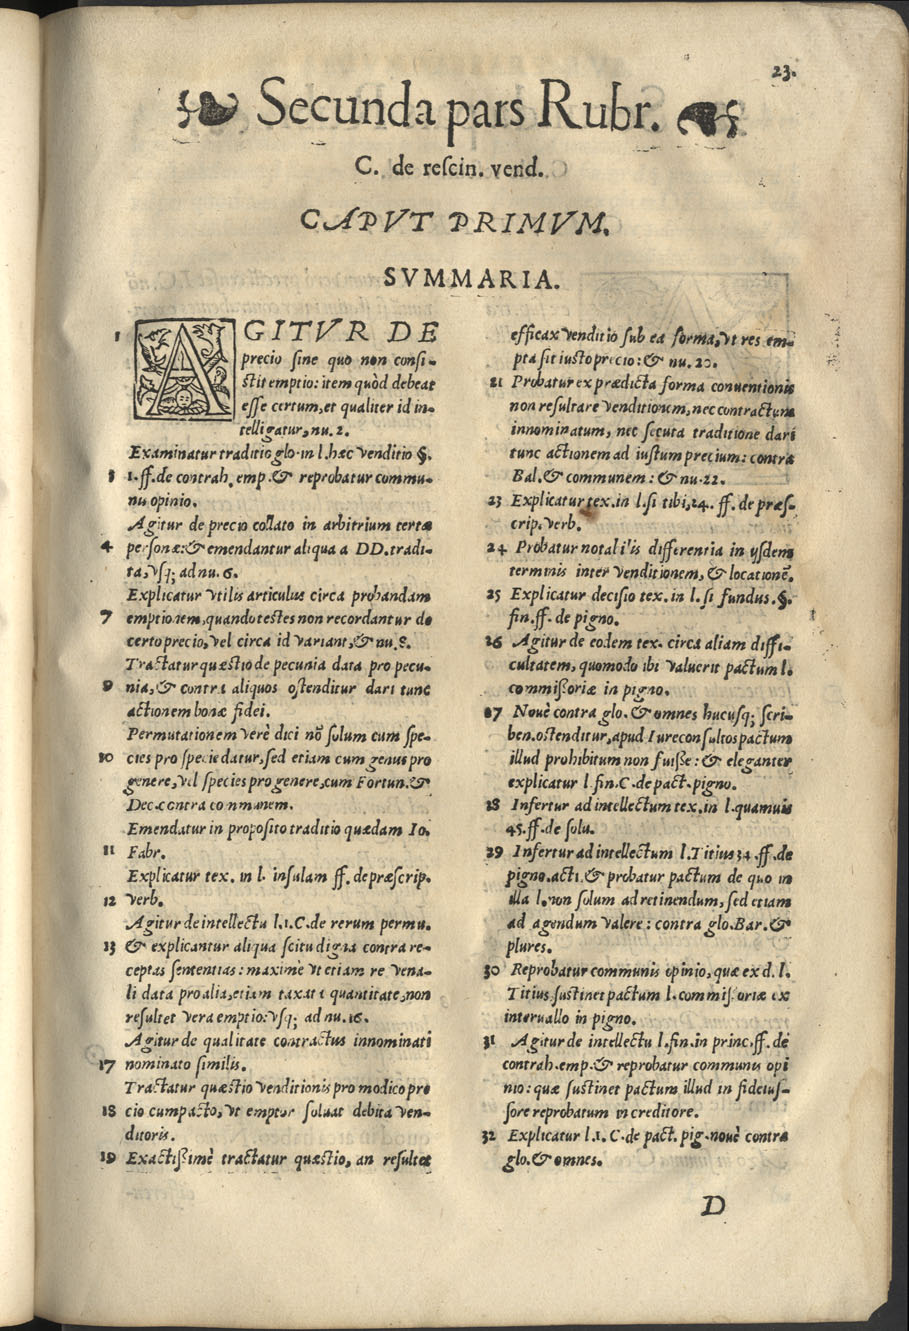 23.
Secunda pars Rubr.
C. de reſcin. vend.
CAPVT PRIMVM.
SVMMARIA.
1 AGITVR DE
precio ſine quo non conſi-
ſtit emptio: item quòd debeat
eſſe certum, et qualiter id in-
telligatur, nu. 2.
Examinatur traditio glo. in l. hæc venditio §.
3 1. ff. de contrah. emp. & reprobatur commu-
nu opinio.
Agitur de precio collato in arbitrium certæ
4 perſonæ: & emendantur aliqua a DD. tradi-
ta, vſq; ad nu. 6.
Explicatur vtilis articulus circa probandam
7 emptionem, quando teſtes non recordantur de
certo precio, vel circa id variant, & nu. 8.
Tractatur quæſtio de pecunia data pro pecu-
9 nia, & contra aliquos oſtenditur dari tunc
actionem bonæ fidei.
Permutationem verè dici nõ ſolum cum ſpe-
10 cies pro ſpecie datur, ſed etiam cum genus pro
genere, vel ſpecies pro genere, cum Fortun. &
Dec. contra communem.
Emendatur in propoſito traditio quædam Io.
11 Fabr.
Explicatur tex. in l. inſulam ff. de præſcrip.
12 verb.
Agitur de intellectu l. 1. C. de rerum permu.
13 & explicantur aliqua ſcitu digna contra re-
ceptas ſententias: maximè vt etiam re vena-
li data pro alia, etiam taxata quantitate, non
reſultet vera emptio: vſq; ad nu. 16.
Agitur de qualitate contractus innominati
17 nominato ſimilis.
Tractatur quæſtio venditionis pro modico pre
18 cio cum pacto, vt emptor ſoluat debita ven-
ditoris.
19 Exactiſſimè tractatur quæſtio, an reſultet
efficax venditio ſub ea forma, vt res em-
pta ſit iuſto precio: & nu. 20.
21 Probatur ex prædicta forma conuentionis
non reſultare venditionem, nec contractum
innominatum, nec ſecuta traditione dari
tunc actionem ad iuſtum precium: contra
Bal. & communem: & nu. 22.
23 Explicatur tex. in l. ſi tibi, 24. ff. de præſ-
crip. verb.
24 Probatur notabilis differentia in yſdem
terminis inter venditionem, & locationẽ.
25 Explicatur deciſio tex. in l. ſi fundus. §.
fin. ff. de pigno.
26 Agitur de eodem tex. circa aliam diffi-
cultatem, quomodo ibi valuerit pactum l.
commiſſoriæ in pigno.
27 Nouè contra glo. & omnes hucuſq; ſcri-
ben. oſtenditur, apud Iureconſultos pactum
illud prohibitum non fuiſſe: & eleganter
explicatur l. fin. C. de pact. pigno.
28 Infertur ad intellectum tex. in l. quamuis
45. ff. de ſolu.
29 Infertur ad intellectum l. Titius 34. ff. de
pigno. acti. & probatur pactum de quo in
illa l. non ſolum ad retinendum, ſed etiam
ad agendum valere: contra glo. Bar. &
plures.
30 Reprobatur communis opinio, quæ ex d. l.
Titius ſuſtinet pactum l. commiſſoriæ ex
interuallo in pigno.
31 Agitur de intellectu l. fin. in princ. ff. de
contrah. emp. & reprobatur communis opi
nio: quæ ſuſtinet pactum illud in fideiuſ-
ſore reprobatum in creditore.
32 Explicatur l. 1. C. de pact. pig. nouè contra
glo. & omnes.
D